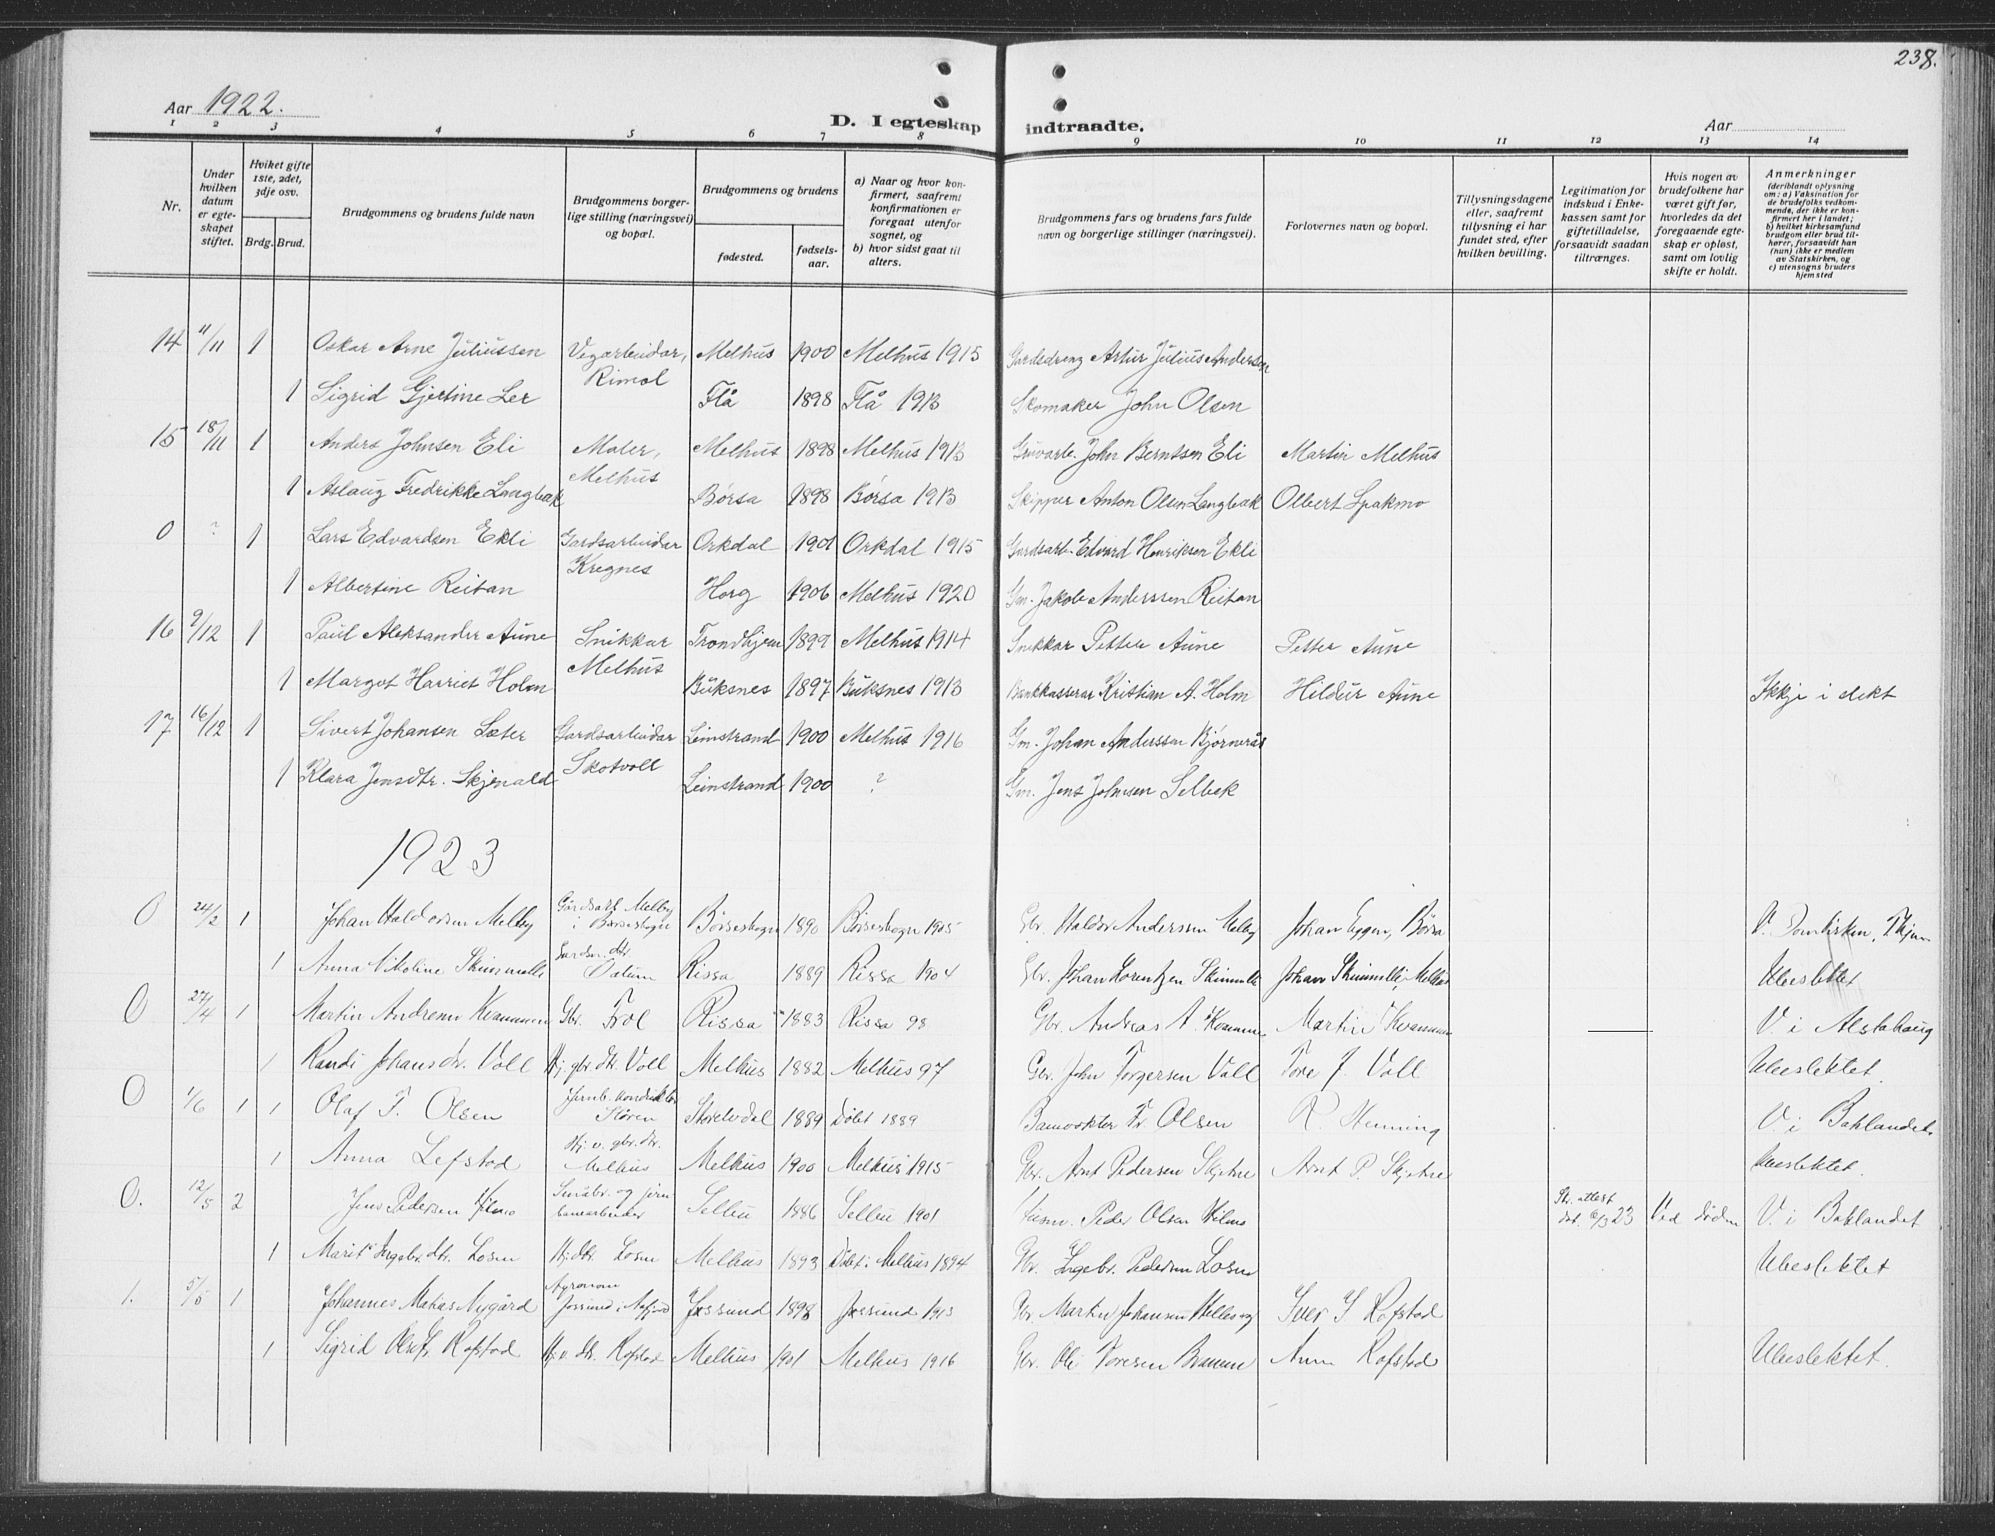 238.
Aar 1922.
D. I egteskap indtraadte.
Aar
1 2 3 4 5 6 7 8 9 10 11 12 13 14
Nr.
Under hvilken datum er egteskapet stiftet.
Hvilket gifte 1ste, 2det, 3dje osv.
Brdg. Brud.
Brudgommens og brudens fulde navn
Brudgommens borgerlige stilling (næringsvei) og bopæl.
Brudgommens og brudens
fødested.
fødselsaar.
a) Naar og hvor konfirmert, saafremt konfirmationen er foregaat utenfor sognet, og
b) hvor sidst gaat til alters.
Brudgommens fars og brudens fars fulde navn og borgerlige stillinger (næringsvei).
Forlovernes navn og bopæl.
Tillysningsdagene eller, saafremt tillysning ei har fundet sted, efter hvilken bevilling.
Legitimation for indskud i Enkekassen samt for giftetilladelse, forsaavidt saadan tiltrænges.
Hvis nogen av brudefolkene har været gift før, hvorledes da det foregaaende egteskap er opløst, samt om lovlig skifte er holdt.
Anmerkninger
(deriblandt oplysning om: a) Vaksination for de brudefolks vedkommende, der ikke er konfirmert her i landet; b) hvilket kirkesamfund brudgom eller brud tilhører, forsaavidt han (hun) ikke er medlem av Statskirken, og c) utensogns bruders hjemsted
14 11/11 1 Oskar Arne Juliussen Vegarbeidar, Rimol Melhus 1900 Melhus 1915 Gardsdreng Artur Julius Andersen
1 Sigrid Gjertine Ler Flå 1898 Flå 1913 Skomaker John Olsen
15 18/11 1 Anders Johnsen Eli Maler, Melhus Melhus 1898 Melhus 1913 Gruvarb. John Berntsen Eli Martin Melhus
1 Aslaug Fredrikke Langbæk Børsa 1898 Børsa 1913 Skipper Anton Olsen Langbæk Olbert Spakmo
0 ? 1 Lars Edvardsen Ekli Gardsarbeidar Kregnes Orkdal 1901 Orkdal 1915 Gardsarb. Edvard Henriksen Ekli
1 Albertine Reitan Horg 1906 Melhus 1920 Gm. Jakob Anderssen Reitan
16 9/12 1 Paul Aleksander Aune Snikkar Melhus Trondhjem 1899 Melhus 1914 Snikkar Petter Aune Petter Aune
1 Margot Harriet Holm Buksnes 1897 Buksnes 1913 Bankkasserar Kristian A. Holm Hildur Aune Ikkje i slekt
17 16/12 1 Sivert Johansen Sæter Gardsarbeidar Skotvoll Leinstrand 1900 Melhus 1916 Gm. Johan Anderssen Bjørnerås
1 Klara Jensdtr. Skjenald Leinstrand 1900 ? Gm. Jens Johnsen Selbek
1923
0 24/2 1 Johan Haldorsen Melby Gårdsarb. Melby i Børseskogn Børseskogn 1890 Børseskogn 1905 Gbr. Haldor Anderssen Melby Johan Eggen, Børsa V. Domkirken, Thjem
1 Anna Nikoline Skimmeli Gardm. dtr. Rissa 1889 Rissa 1904 Gbr. Johan Lorentzen Skimmeli Johan Skimmeli, Melhus Ubeslektet
0 27/4 1 Martin Andreas Kvammen Gbr. Frol Rissa 1883 Rissa 98 Gbr. Andreas A. Kvammen Martin Kvammen V. i Alstahaug
1 Randi Johansdtr. Voll Hj. gbr. dtr. Voll Melhus 1882 Melhus 97 Gbr. John Torgersen Voll Tore J. Voll Ubeslektet.
0 1/6 1 1 Olaf F. Olsen Jernb. konduktør Støren Storelvdal 1889 Døbt 1889 Banevokter Fr. Olsen R. Henning V. i Baklandet.
1 Anna Lefstad Hj. v. gbr. dtr. Melhus Melhus 1900 Melhus 1915 Gbr. Arnt Pedersen Skjetne Arnt P. Skjetne Ubeslektet.
0. 12/5 2 Jens Pedersen Småbr. og jernbanearbeider Selbu 1886 Selbu 1901 Peder Olsen Sk. attest dat. 6/3 23 Ved døden V. i Baklandet
1 Marit Ingebr. dtr. Losen Hj. dtr. Losen Melhus 1893 Døbt i Melhus 1894 Gbr. Ingebr. Pedersen Losen Ubeslektet
1. 5/5 1 Johannes Matias Nygård Agronom Jøssund i Åfjord Jøssund 1898 Jøssund 1913 Gbr. Martin Johansen Iver I. Rofstad
1 Sigrid Olsdtr. Rofstad Hj. v. dtr. Rofstad Melhus 1901 Melhus 1916 Gbr. Ole Toresen Anna Rofstad Ubeslektet.